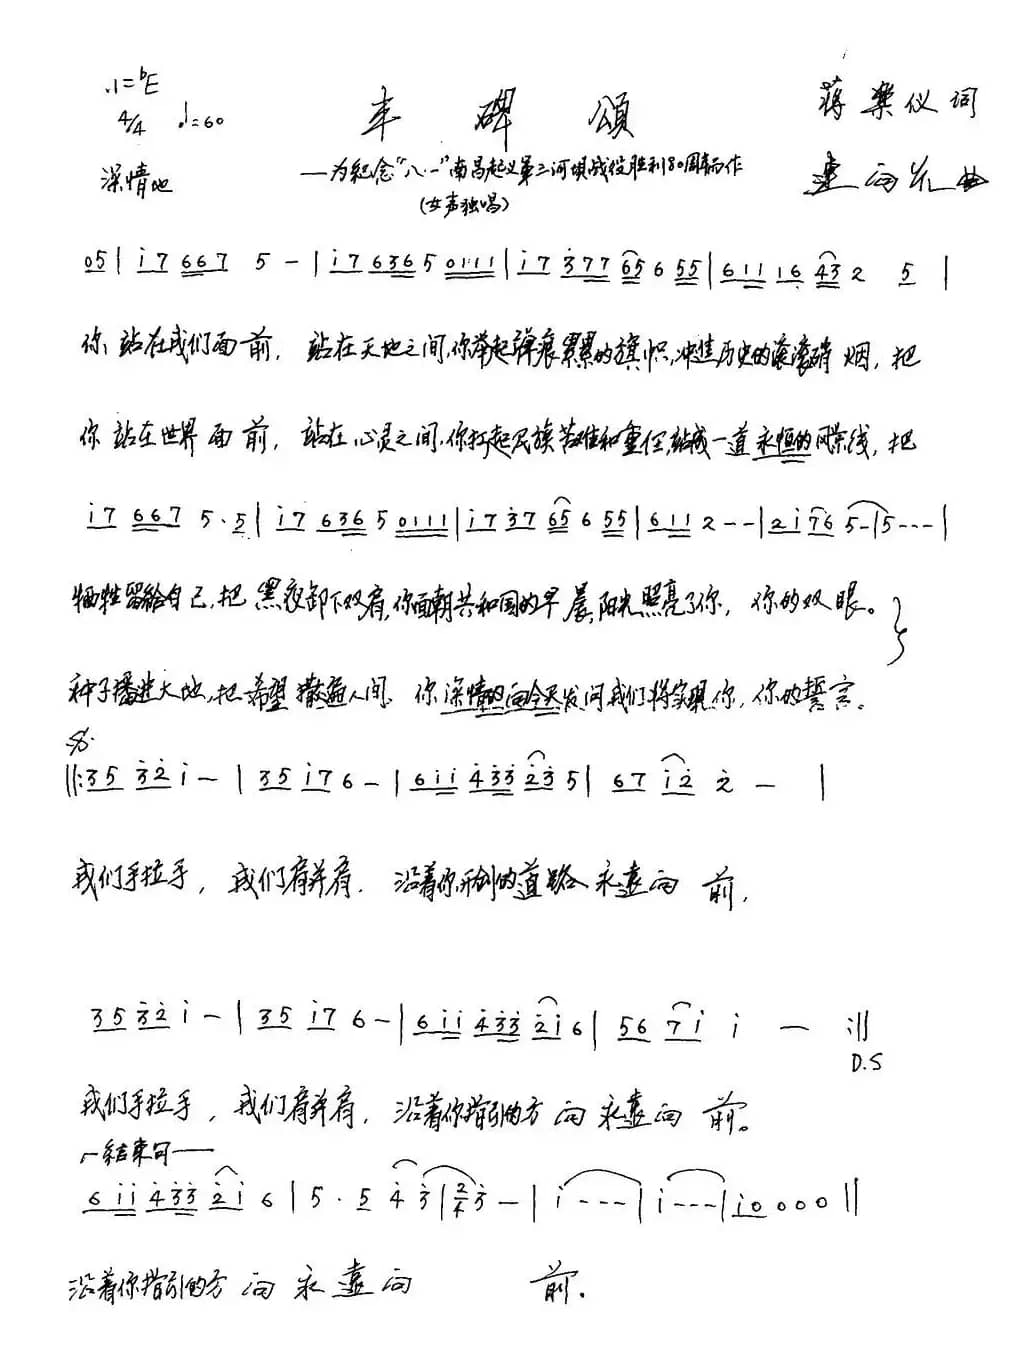 1=♭E
丰碑颂 蒋乐仪词
4/4 ♩=60
深情地 ——为纪念“八·一”南昌起义第三河坝战役胜利80周年而作 建向前曲
(女声独唱)
05 | i7 667 5 - | i7 636 5 0111 | i7 377 65 6 55 | 611 16 43 2 5 |
你站在我们面前，站在天地之间，你举起弹痕累累的旗帜，冲过历史的滚滚硝烟，把
你站在世界面前，站在心灵之间，你扛起民族苦难和重任，站成一道永恒的风景线，把
i7 667 5·5 | i7 636 5 0111 | i7 37 65 6 55 | 611 2 -- | 2i 76 5- | 5--- |
牺牲留给自己，把黑夜卸下双肩，你面朝共和国的早晨，阳光照亮了你，你的双眼。
种子播进大地，把希望撒遍人间，你深情的向今天发问我们将实现你，你的誓言。
𝄋
‖: 35 32 i - | 35 i7 6 - | 6ii 433 23 5 | 67 i2 2 - |
我们手拉手，我们肩并肩，沿着你开创的道路永远向前，
35 32 i - | 35 i7 6 - | 6ii 433 2i 6 | 56 7i i - :‖
D.S
我们手拉手，我们肩并肩，沿着你指引的方向永远向前。
结束句
6ii 433 2i 6 | 5·5 4 3 | 2/4 3 - | i --- | i --- | i0 0 0 0 ‖
沿着你指引的方向永远向前。